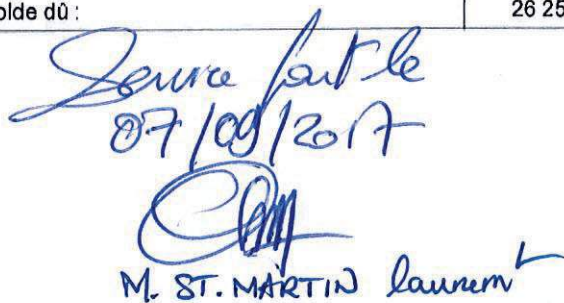 olde dû : 26 25
Service fait le
07/09/2017
M. ST. MARTIN laurent